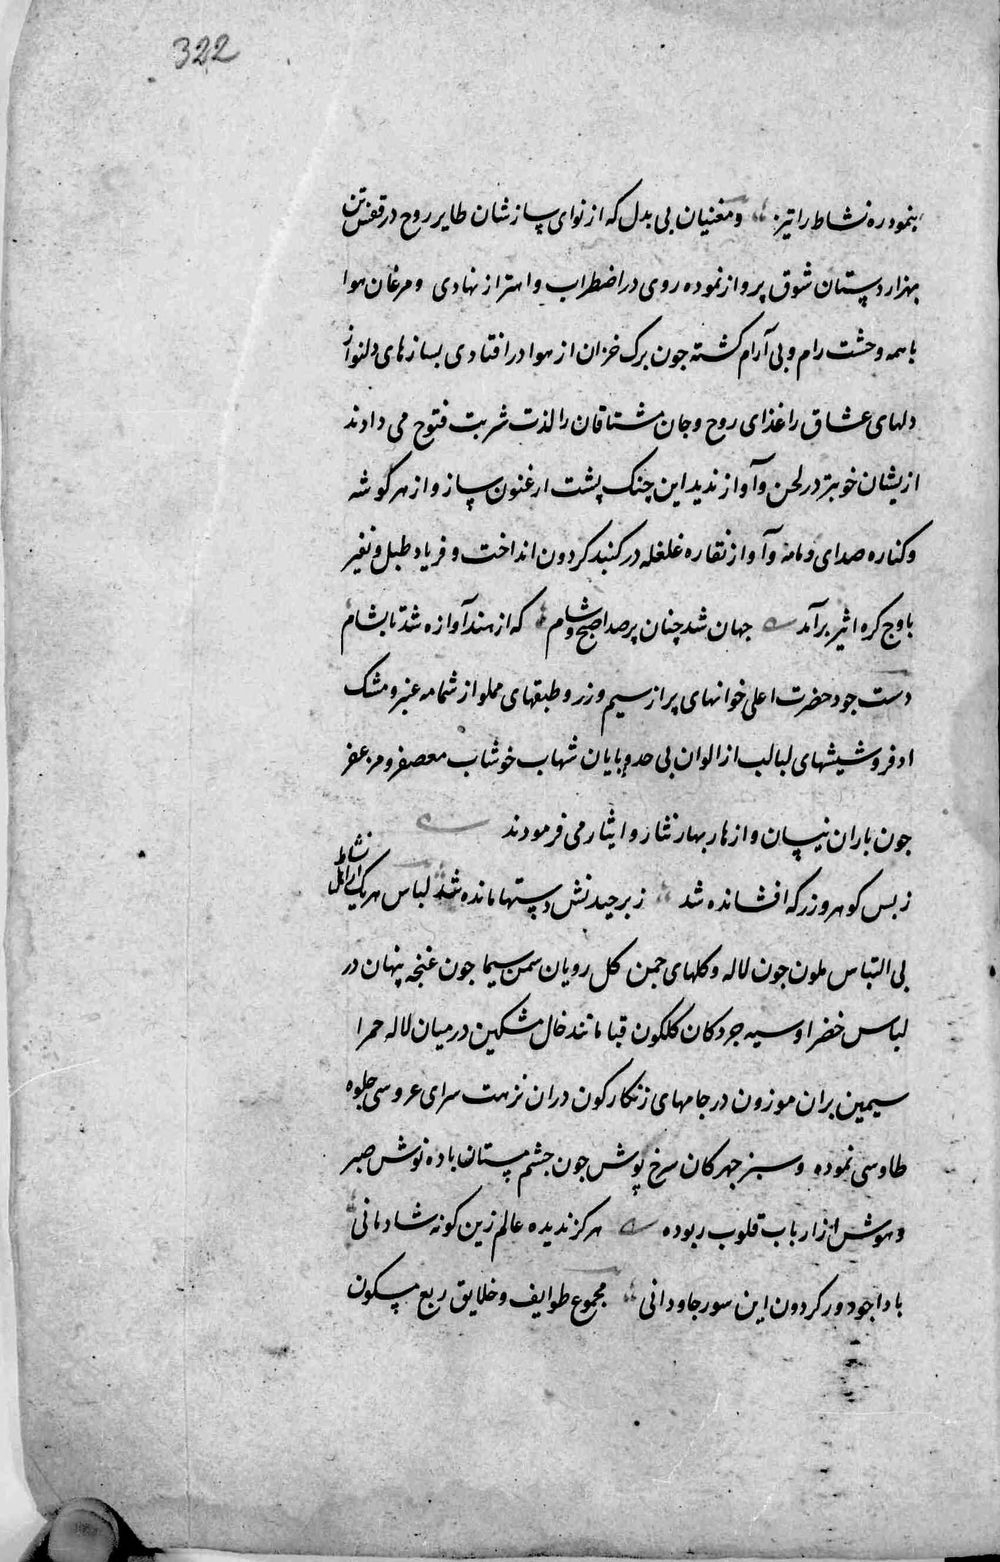 322
بنمود ره نشاط را تیز و مغنیان بی بدل که از نوای سازشان طایر روح در قفس تن
بهزار دستان شوق پرواز نموده روی در اضطراب و اهتزاز نهادی و مرغان هوا
با همه وحشت رام و بی آرام کشته جون برک خزان از هوا در افتادی بسازهای دلنواز
دلهای عشاق را غذای روح و جان مشتاقان را لذت شربت فتوح می دادند
ازیشان خوبتر در لحن و آواز ندید این چنک پشت ارغنون ساز و از هر کوشه
و کناره صدای دمامه و آواز نقاره غلغله در کنبد کردون انداخت و فریاد طبل و نفیر
باوج کره اثیر برآمد جهان شد چنان پر صدا صبح و شام که از هند آوازه شد تا بشام
دست جود حضرت اعلی خوانهای پر از سیم و زر و طبقهای مملو از شمامه عنبر و مشک
اذفر و شیشهای لبالب از الوان بی حد و پایان شهاب خوشاب معصفر و مزعفر
جون باران نیسان و ازهار بهار نثار و ایثار می فرمودند
ز بس کوهر و زر که افشانده شد ز برچیدنش دستها مانده شد لباس هر یک از اهل نشاط
بی التباس ملون جون لاله و کلهای جمن کل رویان سمن سیما جون غنجه پنهان در
لباس خضرا و سیه جردکان کلکون قبا مانند خال مشکین در میان لاله حمرا
سیمین بران موزون در جامهای زنکارکون دران نزهت سرای عروسی جلوه
طاوسی نموده و سبز جهرکان سرخ پوش جون جشم مستان باده نوش صبر
و هوش از ارباب قلوب ربوده هرکز ندیده عالم زین کونه شادمانی
بادا جو دور کردون این سور جاودانی مجموع طوایف و خلایق ربع مسکون